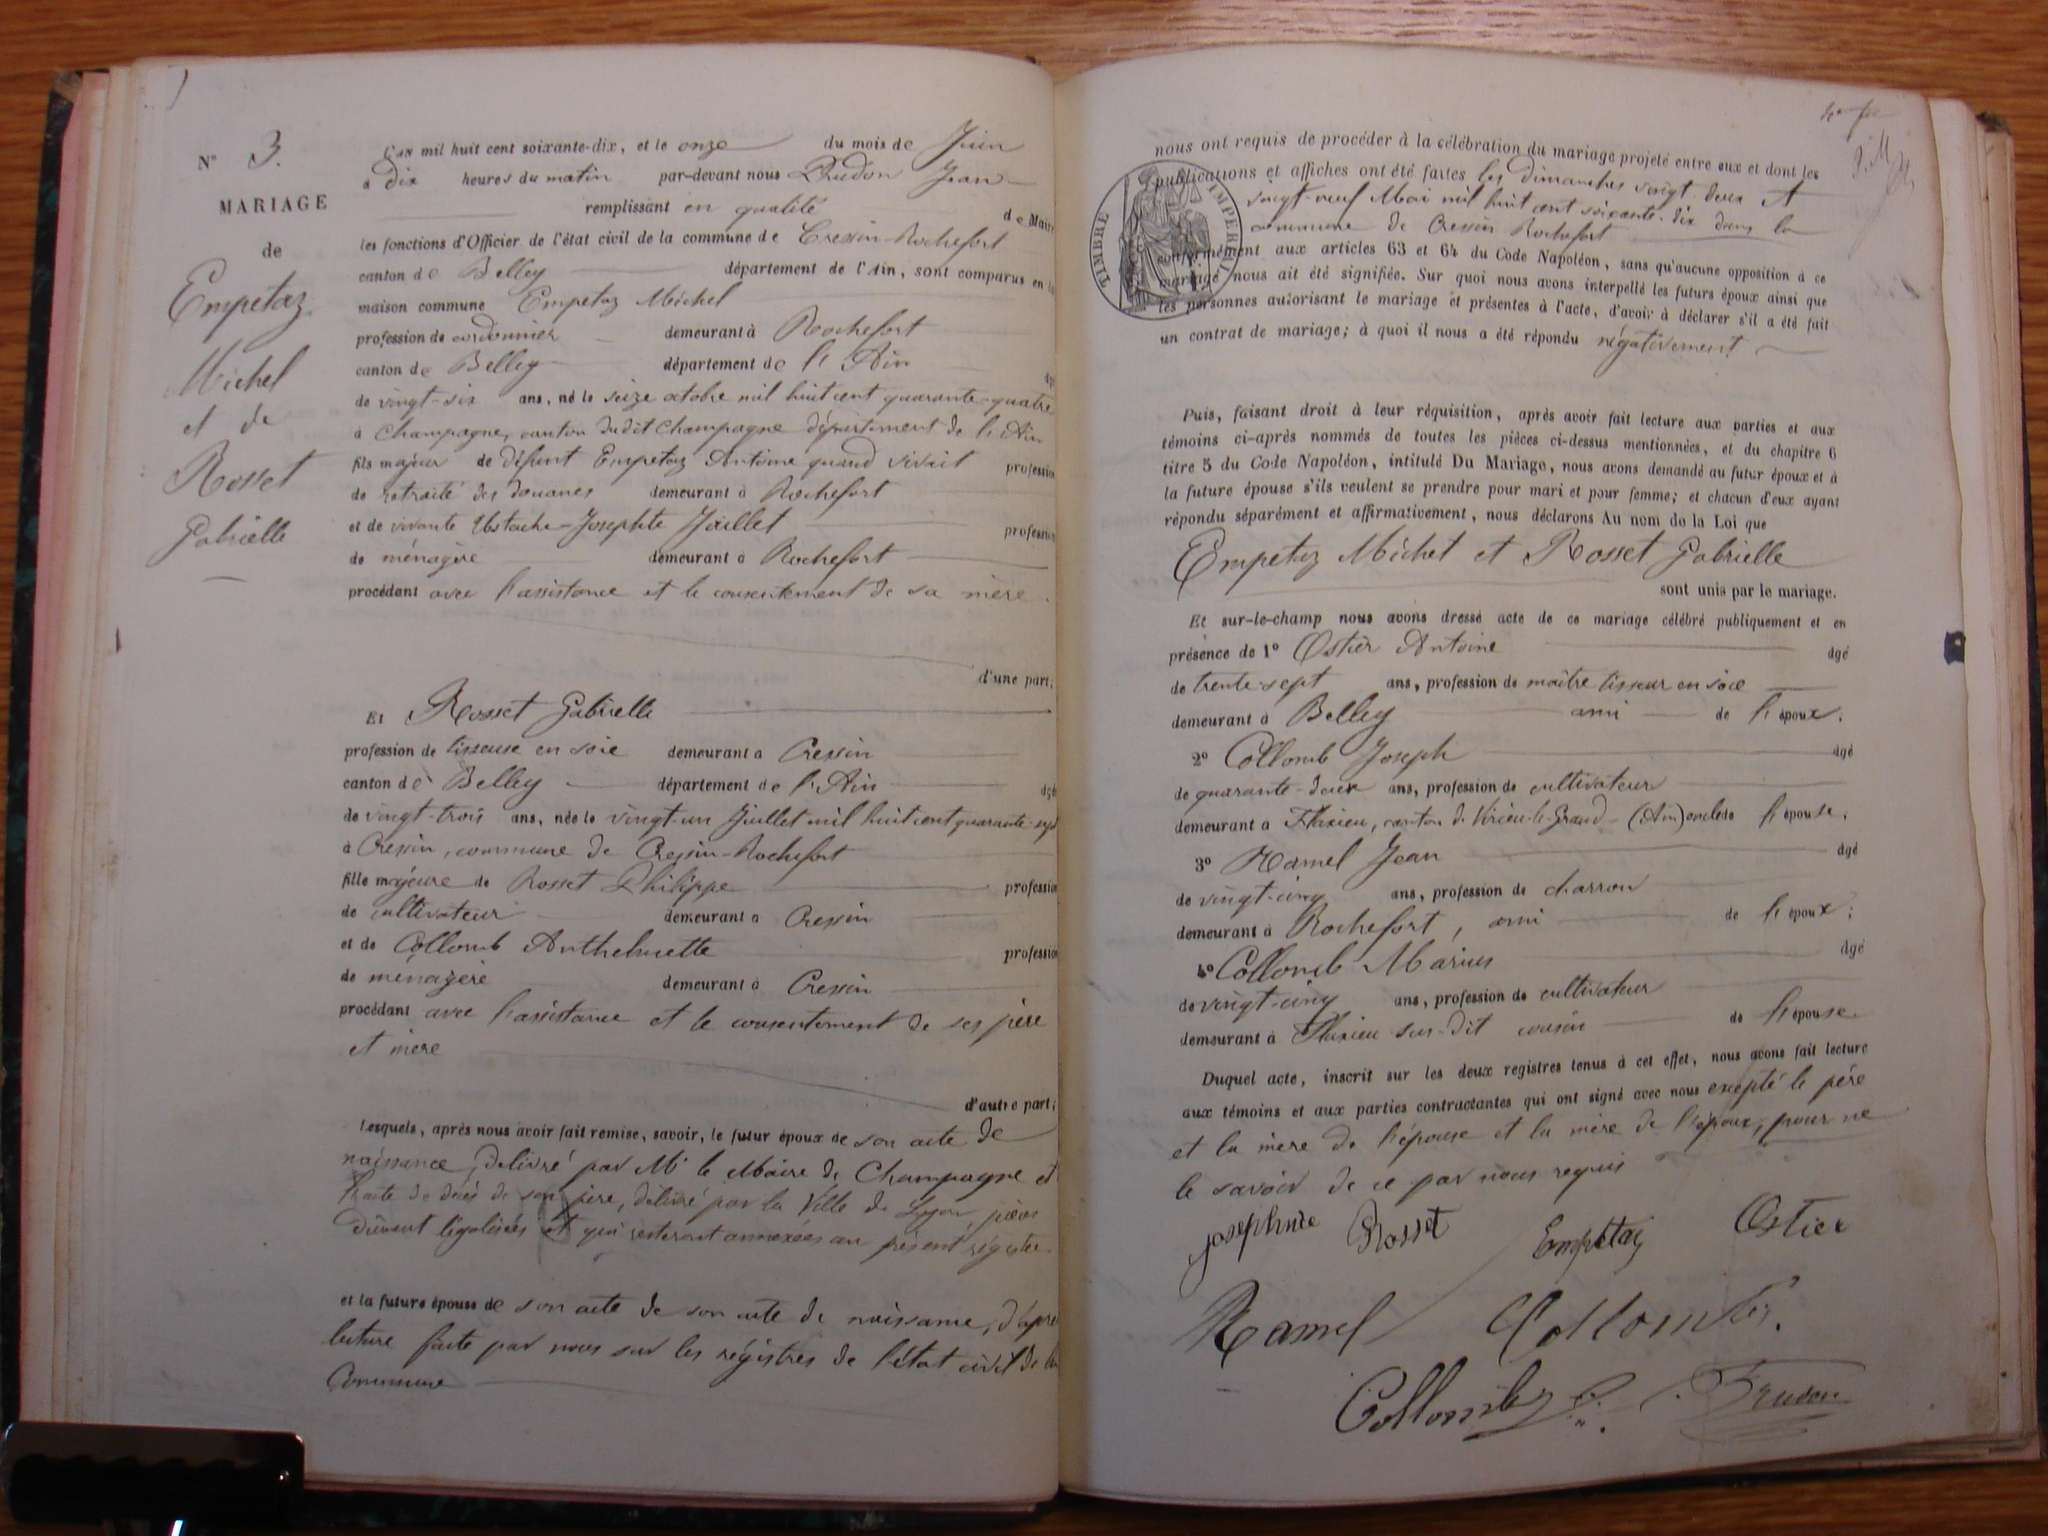 N° 3.
MARIAGE
de
Empetaz
Michel
et de
Rosset
Gabrielle
L'an mil huit cent soixante-dix, et le onze du mois de Juin
à dix heures du matin par-devant nous Prudon Jean
remplissant en qualité de Maire
les fonctions d'Officier de l'état civil de la commune de Cressin-Rochefort
canton de Belley département de l'Ain, sont comparus en la
maison commune Empetaz Michel
profession de cordonnier demeurant à Rochefort
canton de Belley département de l'Ain âgé
de vingt-six ans, né le seize octobre mil huit cent quarante-quatre
à Champagne, canton dudit Champagne département de l'Ain
fils majeur de défunt Empetaz Antoine quand vivait profession
de retraité des douanes demeurant à Rochefort
et de vivante Ustache-Josephte Juillet profession
de ménagère demeurant à Rochefort
procédant avec l'assistance et le consentement de sa mère.
d'une part;
Et Rosset Gabrielle
profession de tisseuse en soie demeurant à Cressin
canton de Belley département de l'Ain âgé
de vingt-trois ans, née le vingt-un Juillet mil huit cent quarante-sept
à Cressin, commune de Cressin-Rochefort
fille majeure de Rosset Philippe profession
de cultivateur demeurant à Cressin
et de Collomb Anthelmette profession
de ménagère demeurant à Cressin
procédant avec l'assistance et le consentement de ses père
et mère
d'autre part;
Lesquels, après nous avoir fait remise, savoir, le futur époux de son acte de
naissance, délivré par Mr le Maire de Champagne et
l'acte de décès de son père, délivré par la Ville de Lyon, pièces
dûment légalisées et qui resteront annexées au présent régistre.
et la future épouse de son acte de son acte de naissance, d'après
lecture faite par nous sur les régistres de l'état civil de la
Commune
nous ont requis de procéder à la célébration du mariage projeté entre eux et dont les
publications et affiches ont été faites les dimanches vingt deux et
vingt-neuf Mai mil huit cent soixante-dix dans la
commune de Cressin Rochefort
TIMBRE IMPERIAL
conformément aux articles 63 et 64 du Code Napoléon, sans qu'aucune opposition à ce
mariage nous ait été signifiée. Sur quoi nous avons interpellé les futurs époux ainsi que
les personnes autorisant le mariage et présentes à l'acte, d'avoir à déclarer s'il a été fait
un contrat de mariage; à quoi il nous a été répondu négativement
Puis, faisant droit à leur réquisition, après avoir fait lecture aux parties et aux
témoins ci-après nommés de toutes les pièces ci-dessus mentionnées, et du chapitre 6
titre 5 du Code Napoléon, intitulé Du Mariage, nous avons demandé au futur époux et à
la future épouse s'ils veulent se prendre pour mari et pour femme; et chacun d'eux ayant
répondu séparément et affirmativement, nous déclarons Au nom de la Loi que
Empetaz Michel et Rosset Gabrielle
sont unis par le mariage.
Et sur-le-champ nous avons dressé acte de ce mariage célébré publiquement et en
présence de 1° Ostier Antoine âgé
de trente-sept ans, profession de maître tisseur en soie
demeurant à Belley ami de l'époux.
2° Collomb Joseph âgé
de quarante-deux ans, profession de cultivateur
demeurant à Flaxieu, canton de Virieu-le-Grand (Ain) oncle de l'épouse.
3° Ramel Jean âgé
de vingt-cinq ans, profession de charron
demeurant à Rochefort, ami de l'époux;
4° Collomb Marius âgé
de vingt-cinq ans, profession de cultivateur
demeurant à Flaxieu sus-dit cousin de l'épouse
Duquel acte, inscrit sur les deux registres tenus à cet effet, nous avons fait lecture
aux témoins et aux parties contractantes qui ont signé avec nous excepté le père
et la mère de l'épouse et la mère de l'époux, pour ne
le savoir de ce par nous requis
josephine Rosset Empetaz Ostier
Ramel Collomb
Collomb Prudon